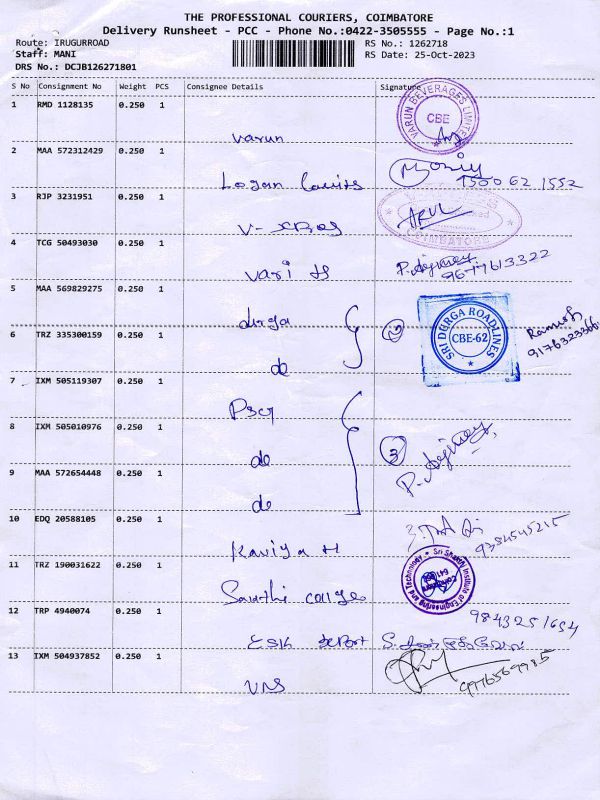 THE PROFESSIONAL COURIERS, COIMBATORE
Delivery Runsheet - PCC - Phone No.:0422-3505555 - Page No.:1
Route: IRUGURROAD RS No.: 1262718
Staff: MANI RS Date: 25-Oct-2023
DRS No.: DCJB126271801
S No Consignment No Weight PCS Consignee Details Signature
1 RMD 1128135 0.250 1
varun
VARUN BEVERAGES LIMITED
CBE
2 MAA 572312429 0.250 1
Logan
3 RJP 3231951 0.250 1
ARUL
COIMBATORE
4 TCG 50493030 0.250 1
vari
9677613322
5 MAA 569829275 0.250 1
durga
SRI DURGA ROADLINES
CBE-62
Ramesh
6 TRZ 335300159 0.250 1
do
7 IXM 505119307 0.250 1
PSG
8 IXM 505010976 0.250 1
do
3
9 MAA 572654448 0.250 1
do
10 EDQ 20588105 0.250 1
Kaviya H
9384545215
11 TRZ 190031622 0.250 1
Sri Shakthi Institute of Engineering and Technology
12 TRP 4940074 0.250 1
9843251694
13 IXM 504937852 0.250 1
VNS
9976569985